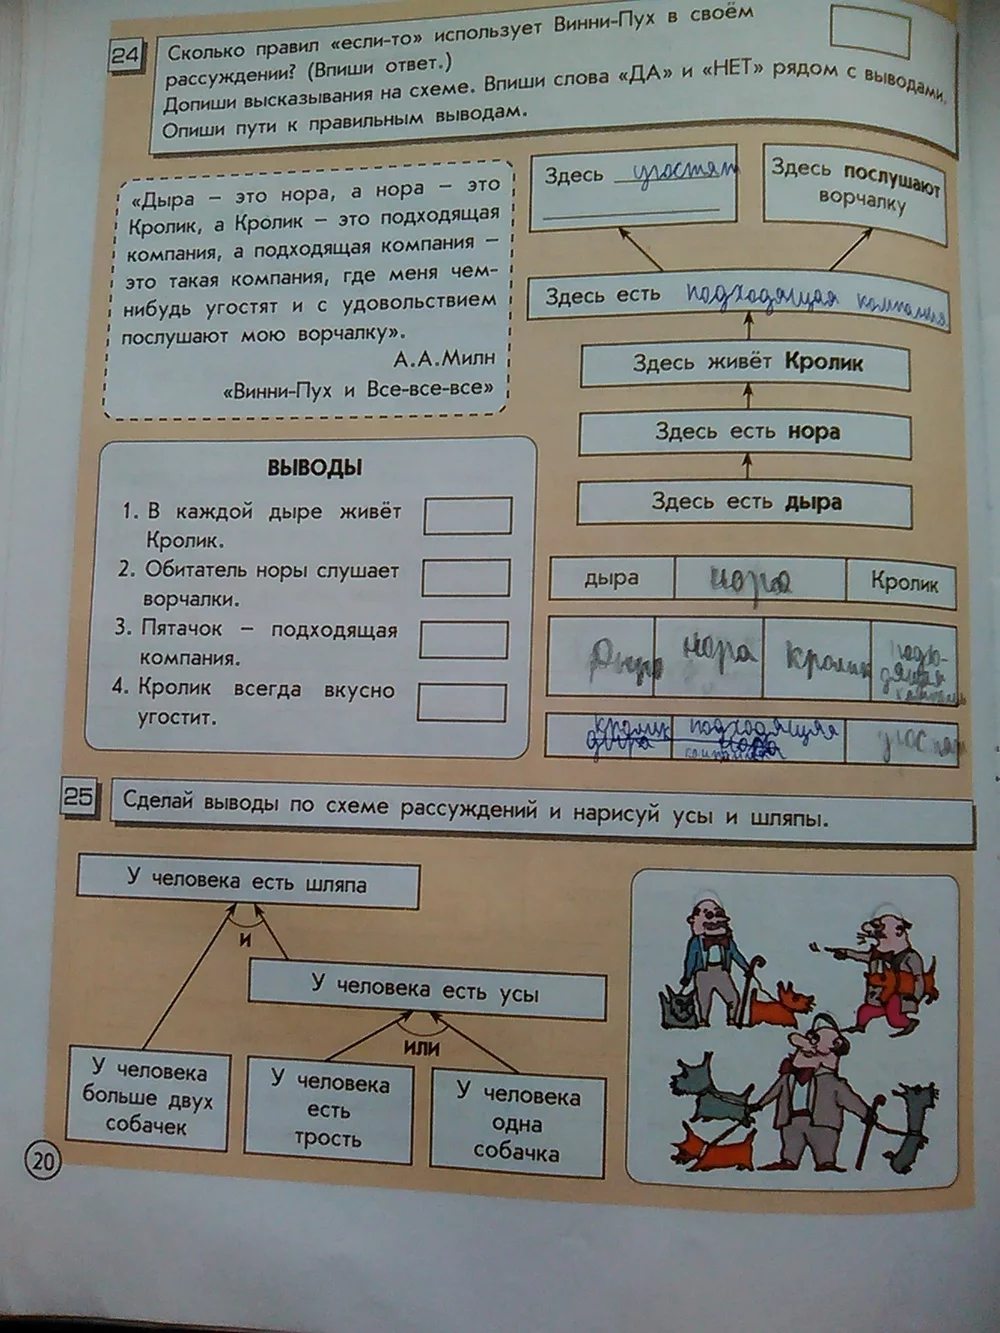 24
Сколько правил «если-то» использует Винни-Пух в своём
рассуждении? (Впиши ответ.)
Допиши высказывания на схеме. Впиши слова «ДА» и «НЕТ» рядом с выводами.
Опиши пути к правильным выводам.
«Дыра – это нора, а нора – это
Кролик, а Кролик – это подходящая
компания, а подходящая компания –
это такая компания, где меня чем-
нибудь угостят и с удовольствием
послушают мою ворчалку».
А.А.Милн
«Винни-Пух и Все-все-все»
Здесь угостят
Здесь послушают
ворчалку
Здесь есть подходящая компания
Здесь живёт Кролик
Здесь есть нора
Здесь есть дыра
ВЫВОДЫ
1. В каждой дыре живёт
Кролик.
2. Обитатель норы слушает
ворчалки.
3. Пятачок – подходящая
компания.
4. Кролик всегда вкусно
угостит.
дыра нора Кролик
Дыра нора кролик подхо-
дящая
компания
кролик подходящая угостят
дыра нора
25
Сделай выводы по схеме рассуждений и нарисуй усы и шляпы.
У человека есть шляпа
И
У человека есть усы
ИЛИ
У человека
больше двух
собачек
У человека
есть
трость
У человека
одна
собачка
20